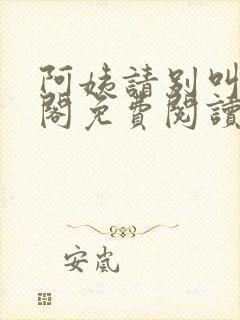 阿姨請別叫
閣免費閱讀
安嵐